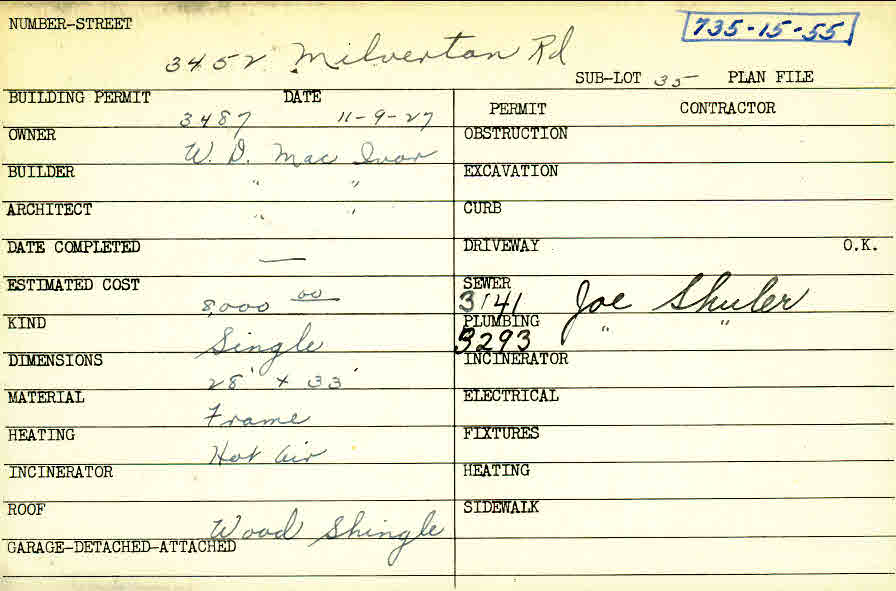 NUMBER-STREET
735-15-55
3452 Milverton Rd
SUB-LOT 35 PLAN FILE
BUILDING PERMIT DATE
3487 11-9-27
PERMIT CONTRACTOR
OWNER
W. D. Mac Ivor
OBSTRUCTION
BUILDER
" "
EXCAVATION
ARCHITECT
" "
CURB
DATE COMPLETED
—
DRIVEWAY O.K.
ESTIMATED COST
8,000 00
SEWER
3141 Joe Shuler
KIND
Single
PLUMBING
3293 " "
DIMENSIONS
28' x 33'
INCINERATOR
MATERIAL
Frame
ELECTRICAL
HEATING
Hot Air
FIXTURES
INCINERATOR
HEATING
ROOF
Wood Shingle
SIDEWALK
GARAGE-DETACHED-ATTACHED